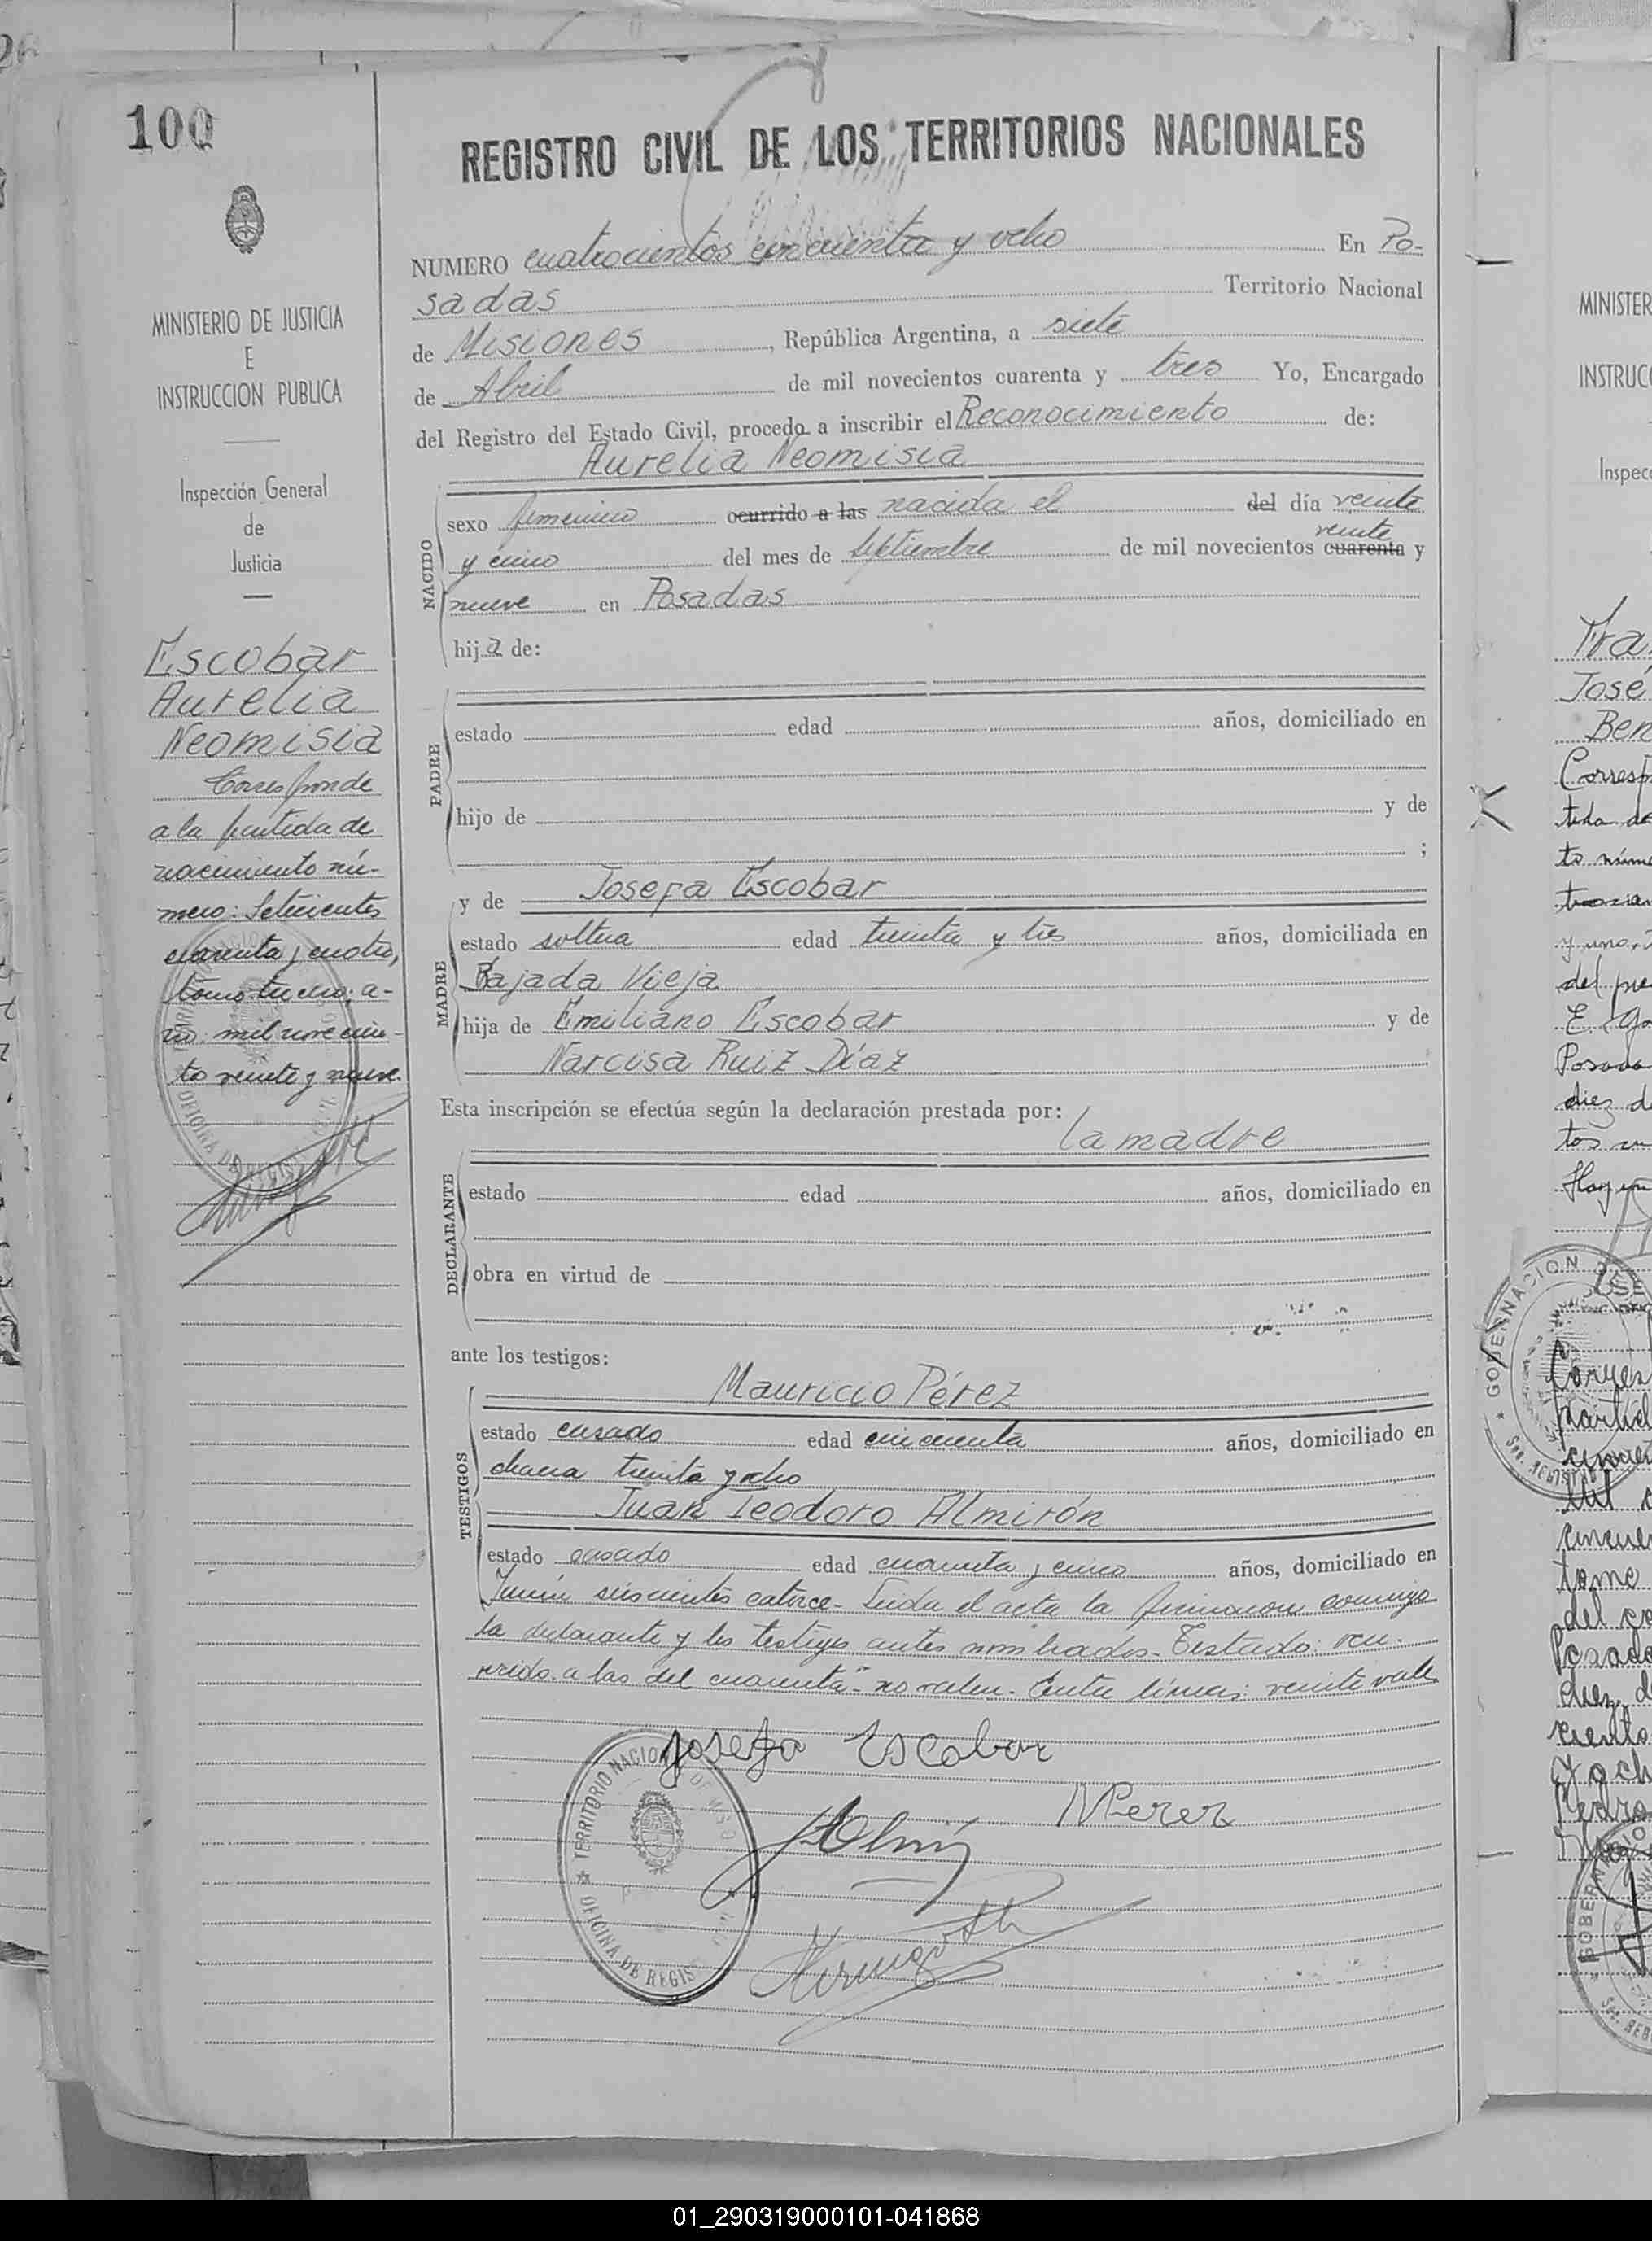 100
REGISTRO CIVIL DE LOS TERRITORIOS NACIONALES
NUMERO cuatrocientos cincuenta y ocho En Po-
sadas Territorio Nacional
de Misiones, República Argentina, a siete
de Abril de mil novecientos cuarenta y tres Yo, Encargado
del Registro del Estado Civil, procedo a inscribir el Reconocimiento de:
Aurelia Neomisia
NACIDO
sexo femenino ocurrido a las nacida el del día veinte
veinte
y cinco del mes de septiembre de mil novecientos cuarenta y
nueve en Posadas
hija de:
PADRE
estado edad años, domiciliado en
hijo de y de
;
MADRE
y de Josefa Escobar
estado soltera edad treinta y tres años, domiciliada en
Bajada Vieja
hija de Emiliano Escobar y de
Narcisa Ruiz Díaz
Esta inscripción se efectúa según la declaración prestada por:
la madre
DECLARANTE
estado edad años, domiciliado en
obra en virtud de
ante los testigos:
TESTIGOS
Mauricio Pérez
estado casado edad cincuenta años, domiciliado en
chacra treinta y ocho
Juan Teodoro Almirón
estado casado edad cuarenta y cinco años, domiciliado en
Junín seiscientos catorce - Leida el acta la firmaron conmigo
la declarante y los testigos antes nombrados - Testado: ocu-
rrido a las del cuarenta - no valen - Entre líneas: veinte vale
Josefa Escobar
MPerez
TERRITORIO NACIONAL DE MISIONES
OFICINA DE REGIS
MINISTERIO DE JUSTICIA
E
INSTRUCCION PUBLICA
Inspección General
de
Justicia
Escobar
Aurelia
Neomisia
Corresponde
a la partida de
nacimiento nú-
mero: Setecientos
cuarenta y cuatro,
tomo tercero; a-
ño: mil novecien-
to veinte y nueve.
OFICINA DE REGIS
MINISTER
INSTRUC
Inspec
José
Corresp
to núme
y uno,
del pre
Posada
diez d
GOBERNACION
tomo
del co
01_290319000101-041868